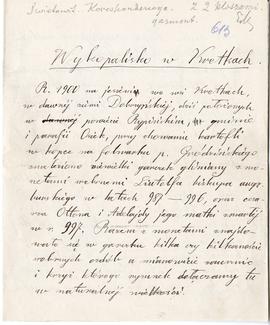 Światowit. Korespondencya. Z 2 kliszami.
garmont.
613
Wykopalisko w Kwotkach.
R. 1900 na jesieni we wsi Kwotkach,
w dawnej ziemi Dobrzyńskiej, dziś położonych
w dawnej powiecie Rypińskim, gminie
i parafii Osiek, przy chowaniu kartofli
w kopce na folwarku p. Grodzińskiego
znaleziono niewielki garnek gliniany z mo
netami srebrnemi Liutolfa biskupa augs
burskiego w latach 987 – 996, oraz cesa
rza Ottona i Adelajdy jego matki zmarłej
w r. 999. Razem z monetami znajdo
wało się w garnku kilka czy kilkanaście
srebrnych ozdób a mianowicie zausznic
i krzyż którego rysunek dołączamy tu
w naturalnej wielkości.